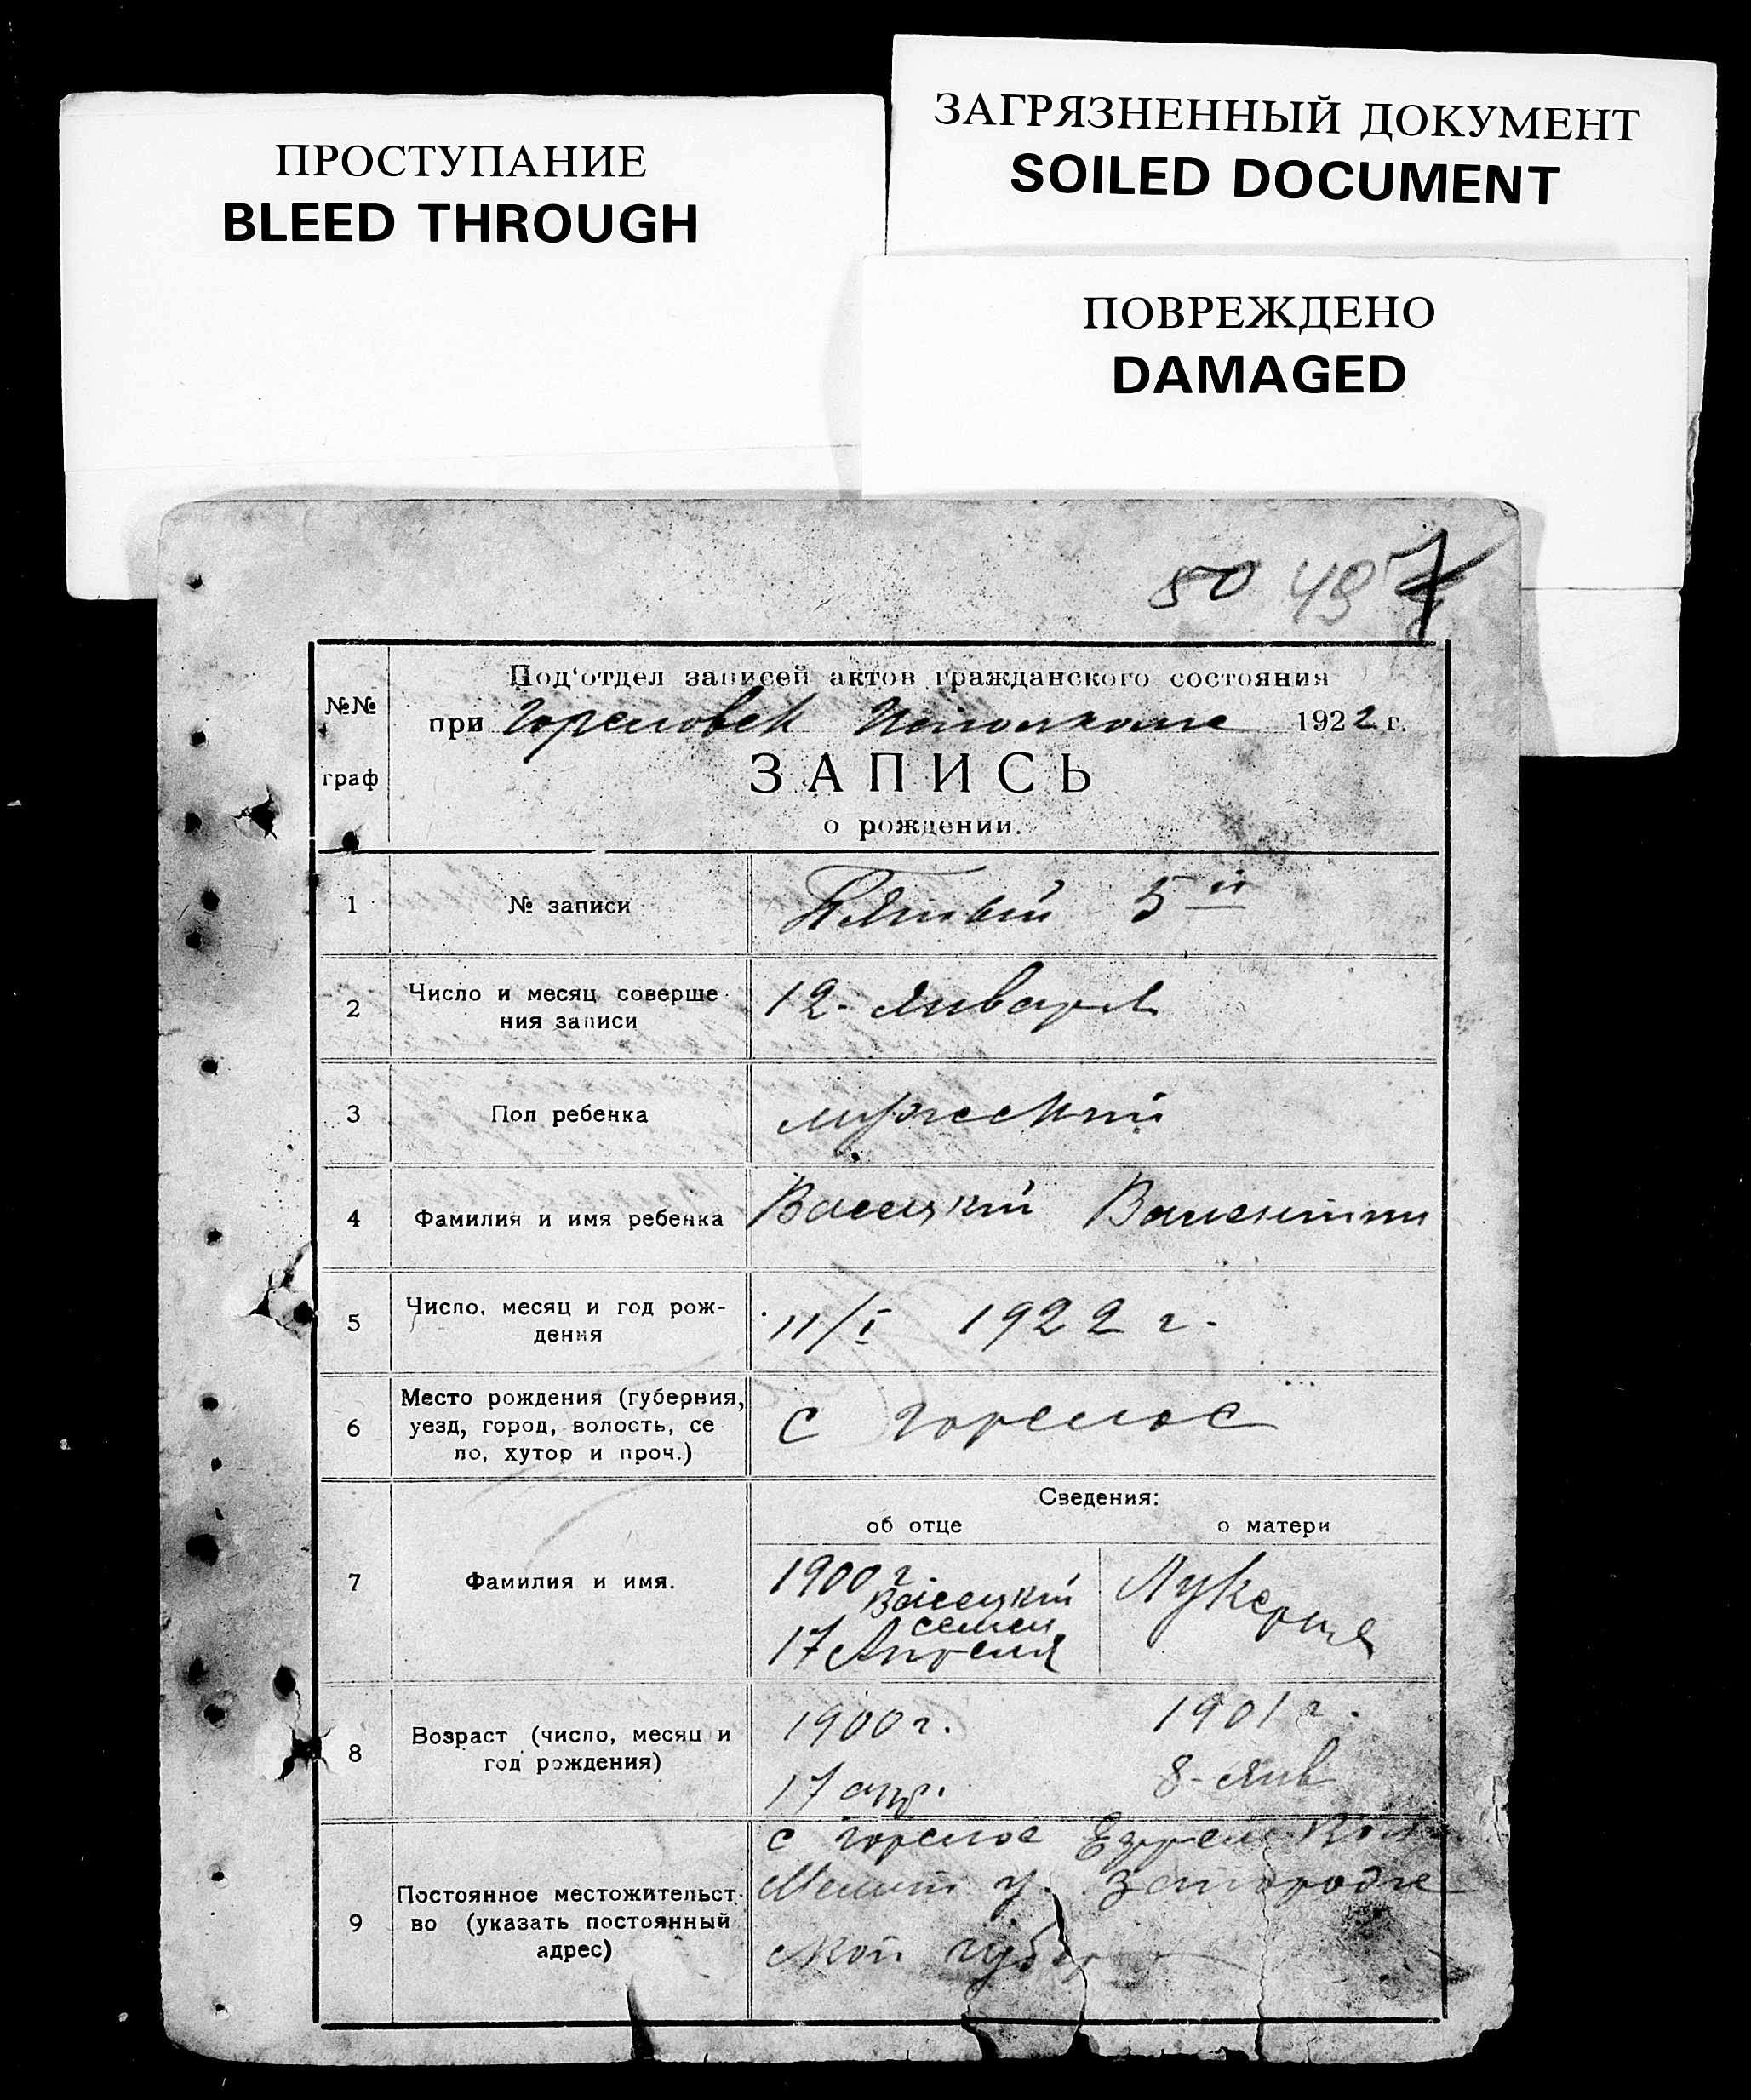 ПРОСТУПАНИЕ
BLEED THROUGH
ЗАГРЯЗНЕННЫЙ ДОКУМЕНТ
SOILED DOCUMENT
ПОВРЕЖДЕНО
DAMAGED
50 49 7
№№ граф
Под‘отдел записей актов гражданского состояния
при Гореловск Исполкоме 1922 г.
ЗАПИСЬ
о рождении.
1 № записи Пятый 5 й
2 Число и месяц соверше
ния записи 12 - Января
3 Пол ребенка мужский
4 Фамилия и имя ребенка Васецкий Валентин
5 Число, месяц и год рож-
дения 11/I 1922 г.
6 Место рождения (губерния,
уезд, город, волость, се
ло, хутор и проч.) С Горелое
Сведения:
об отце о матери
7 Фамилия и имя.
1900 г.
Васецкий
семен
17 Апреля
Лукерия
8 Возраст (число, месяц и
год рождения)
1900 г. 1901 г.
17 апр. 8 - Янв
9 Постоянное местожительст
во (указать постоянный
адрес)
с Горелое Ефрем. Вол.
Мелит у. Запорож
ской губер